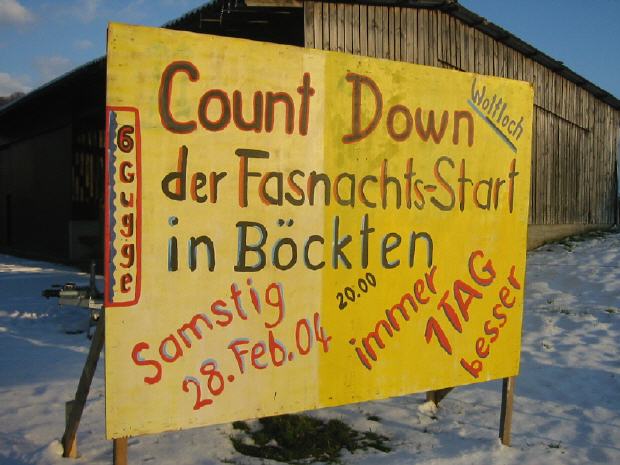 Count Down
Wolfloch
der Fasnachts-Start
in Böckten
6 Gugge
Samstig
28. Feb. 04
20.00
immer
1 TAG
besser